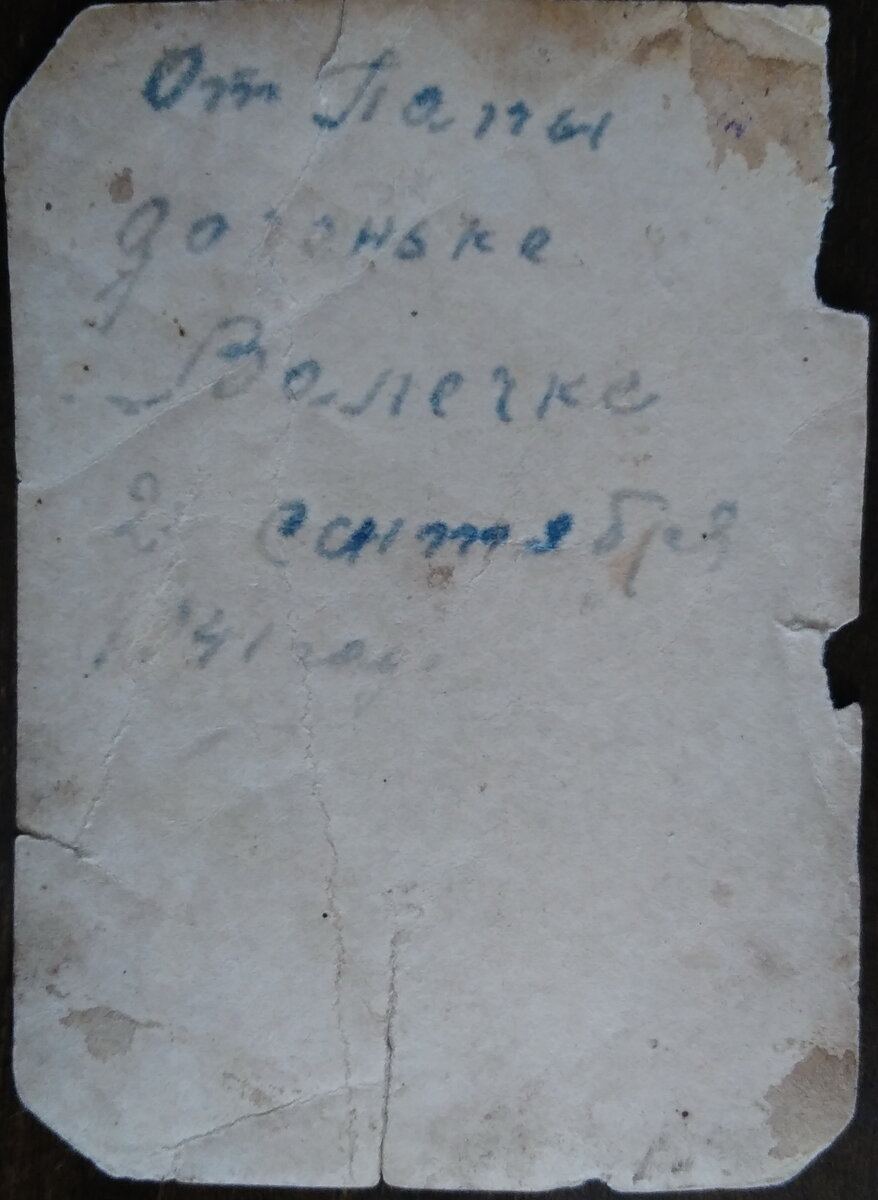 От Папы
доченьке
Валечке
2 сентября
1941 году